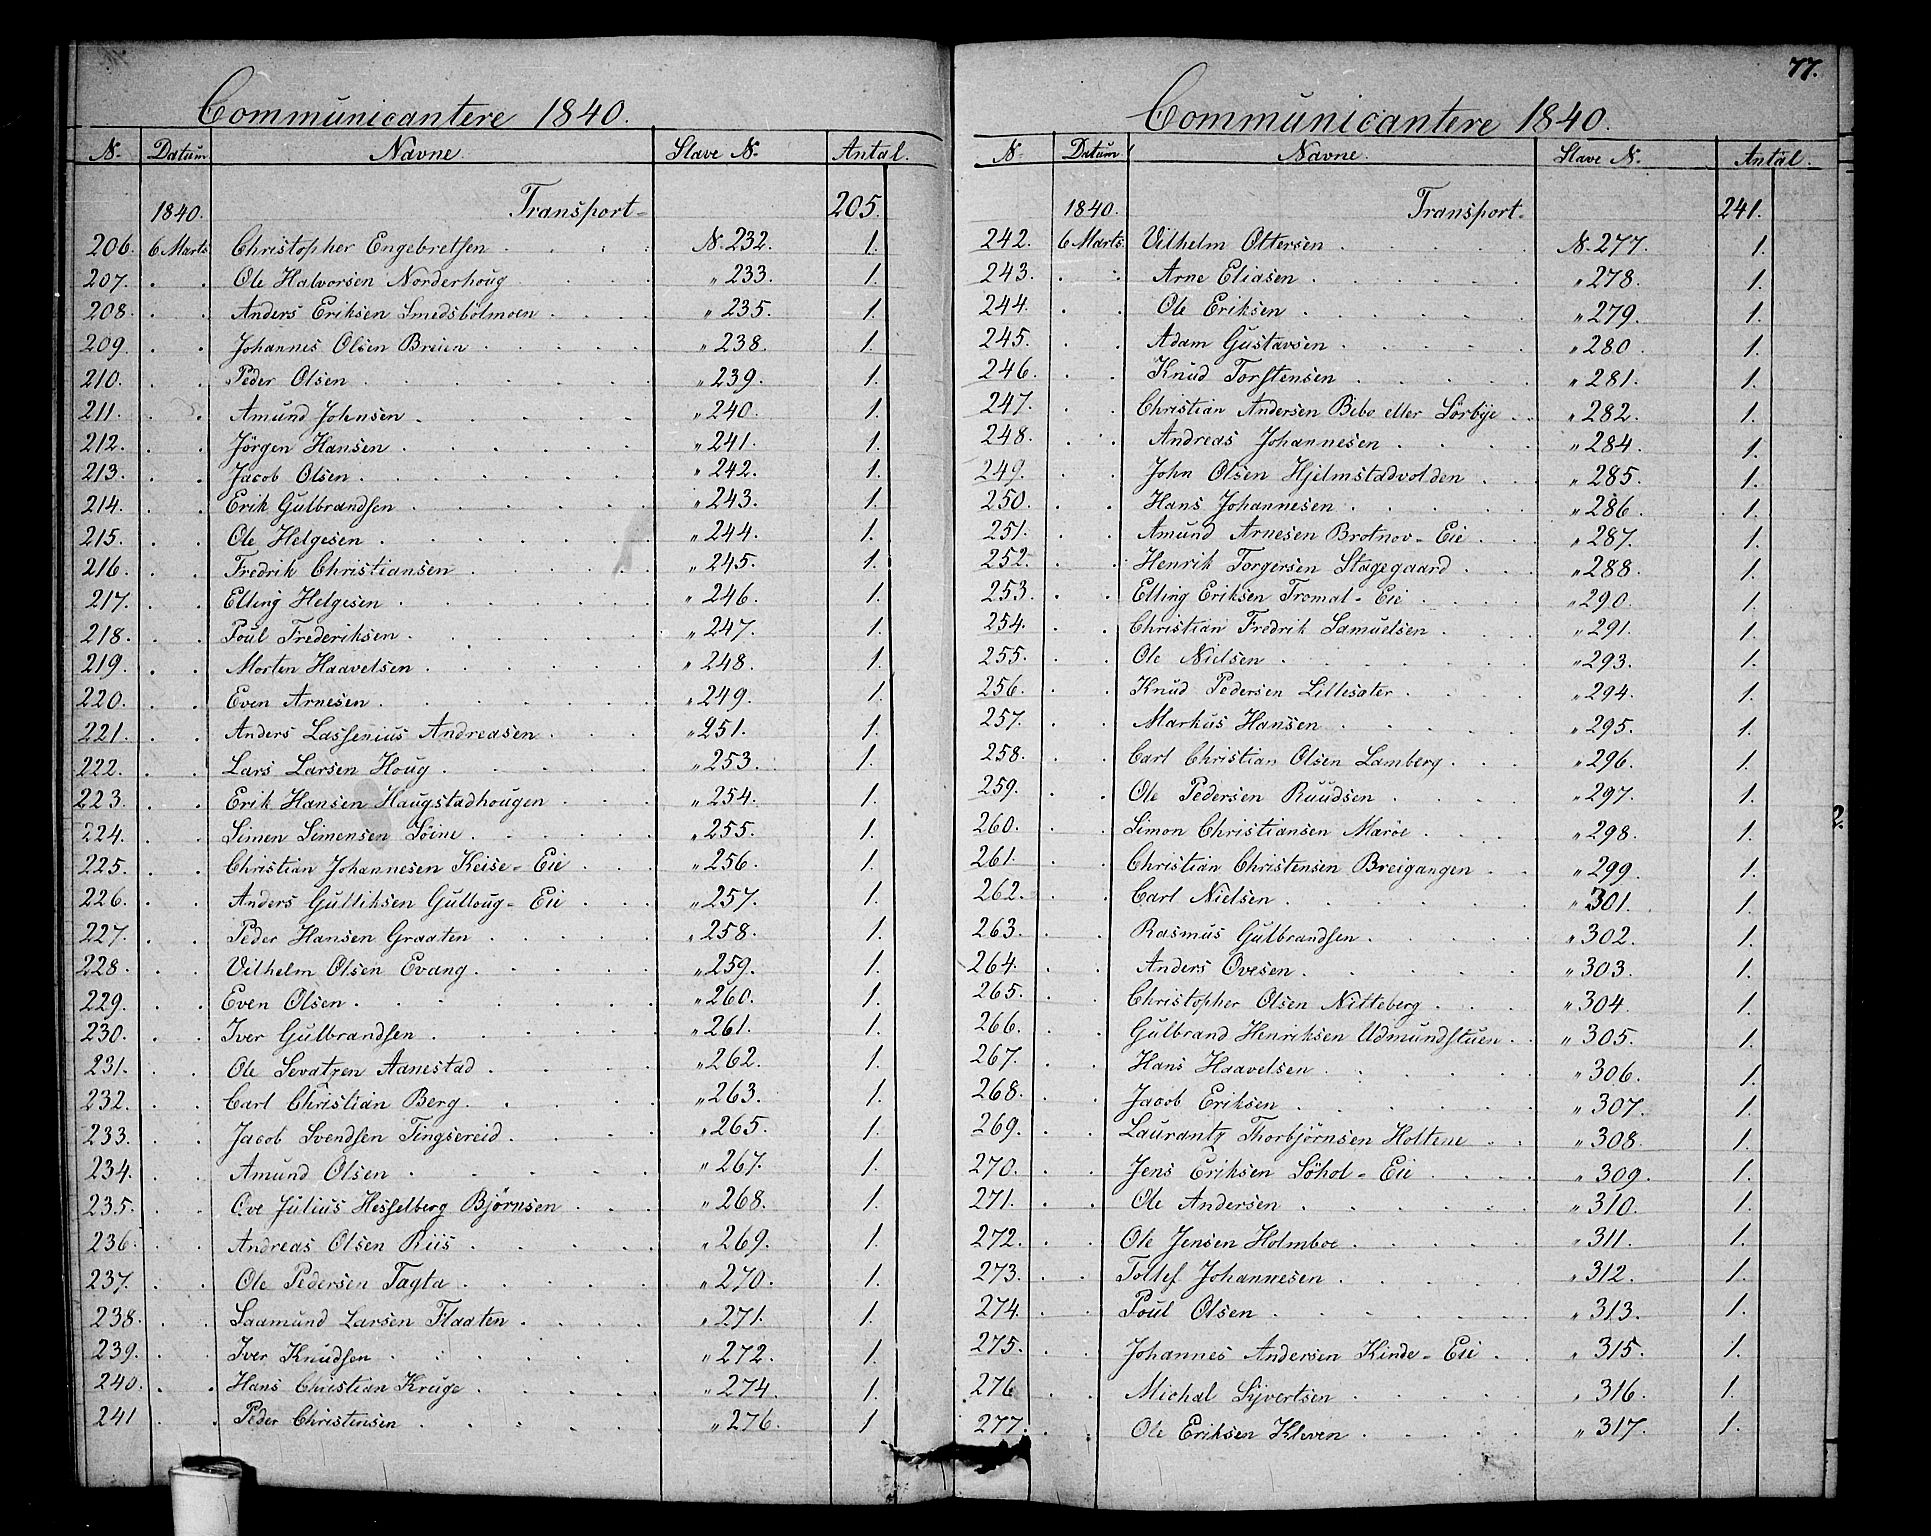 Communicantere 1840.
N. Datum Navne. Slave N. Antal.
1840. Transport 205.
206. 6 Marts Christopher Engebretsen . . . N. 232. 1.
207. . . Ole Halvorsen Norderhoug . . . " 233. 1.
208. . . Anders Eriksen Smedsbölmoen . . . " 235. 1.
209. . . Johannes Olsen Breien . . . " 238. 1.
210. . . Peder Olsen . . . " 239. 1.
211. . . Amund Johnsen . . . " 240. 1.
212. . . Jörgen Hansen . . . " 241. 1.
213. . . Jacob Olsen . . . " 242. 1.
214. . . Erik Gulbrandsen . . . " 243. 1.
215. . . Ole Helgesen . . . " 244. 1.
216. . . Fredrik Christiansen . . . " 245. 1.
217. . . Elling Helgesen . . . " 246. 1.
218. . . Poul Frederiksen . . . " 247. 1.
219. . . Morten Haavelsen . . . " 248. 1.
220. . . Even Arnesen . . . " 249. 1.
221. . . Anders Lassenius Andreasen . . . " 251. 1.
222. . . Lars Larsen Houg . . . " 253. 1.
223. . . Erik Hansen Haugstadhougen . . . " 254. 1.
224. . . Simen Simensen Söine . . . " 255. 1.
225. . . Christian Johannesen Keise-Eie . . . " 256. 1.
226. . . Anders Gulliksen Gulloug-Eie . . . " 257. 1.
227. . . Peder Hansen Graaten . . . " 258. 1.
228. . . Vilhelm Olsen Evang . . . " 259. 1.
229. . . Even Olsen . . . " 260. 1.
230. . . Iver Gulbrandsen . . . " 261. 1.
231. . . Ole Sevatzen Aanestad . . . " 262. 1.
232. . . Carl Christian Berg . . . " 263. 1.
233. . . Jacob Svendsen Tingsereid . . . " 265. 1.
234. . . Amund Olsen . . . " 267. 1.
235. . . Ove Julius Hesselberg Bjørnsen . . . " 268. 1.
236. . . Andreas Olsen Riis . . . " 269. 1.
237. . . Ole Pedersen Tagta . . . " 270. 1.
238. . . Saamund Larsen Flaaten . . . " 271. 1.
239. . . Iver Knudsen . . . " 272. 1.
240. . . Hans Christian Kruge . . . " 274. 1.
241 . . Peder Christensen . . . " 276. 1
77.
Communicantere 1840.
N. Datum Navne. Slave N. Antal.
1840. Transport. 241.
242. 6 Marts. Vilhelm Ottersen . . . N. 277. 1.
243. . . Arne Eliasen . . . " 278. 1.
244. . . Ole Eriksen . . . " 279. 1.
245. . . Adam Gustavsen . . . " 280. 1.
246. . . Knud Torstensen . . . " 281. 1.
247. . . Christian Andersen Bebo eller Sörbye . . " 282. 1.
248. . . Andreas Johannesen . . . " 284. 1.
249. . . John Olsen Hjelmstadvolden . . . " 285. 1.
250. . . Hans Johannesen . . . " 286. 1.
251. . . Amund Arnesen Brotnov-Eie . . . " 287. 1.
252. . . Henrik Torgersen Stagegaard . . . " 288. 1.
253. . . Elling Eriksen Tromal-Eie . . . " 290. 1.
254. . . Christian Fredrik Samuelsen . . . " 291. 1.
255. . . Ole Nielsen . . . " 293. 1.
256. . . Knud Pedersen Lillesater . . . " 294. 1.
257. . . Markus Hansen . . . " 295. 1.
258. . . Carl Christian Olsen Lamberg . . . " 296. 1.
259. . . Ole Pedersen Ruudsen . . . " 297. 1.
260. . . Simon Christiansen Maröe . . . " 298. 1.
261. . . Christian Christensen Breigangen . . " 299. 1.
262. . . Carl Nielsen . . . " 301. 1.
263. . . Rasmus Gulbrandsen . . . " 302. 1.
264. . . Anders Ovesen . . . " 303. 1.
265. . . Christopher Olsen Nitteberg . . . " 304. 1.
266. . . Gulbrand Henriksen Udmundstuen . . " 305. 1.
267. . . Hans Haavelsen . . . " 306. 1.
268. . . Jacob Eriksen . . . " 307. 1.
269. . . Laurantz Thorbjörnsen Holtene . . " 308. 1.
270. . . Jens Eriksen Söhol-Eie . . . " 309. 1.
271. . . Ole Andersen . . . " 310. 1.
272. . . Ole Jensen Holmboe . . . " 311. 1.
273. . . Tollef Johannesen . . . " 312. 1.
274. . . Poul Olsen . . . " 313. 1.
275. . . Johannes Andersen Kinde-Eie . . " 315. 1.
276 . . Michal Syvertsen . . . " 316. 1.
277. . Ole Eriksen Kleven . . . " 317. 1.